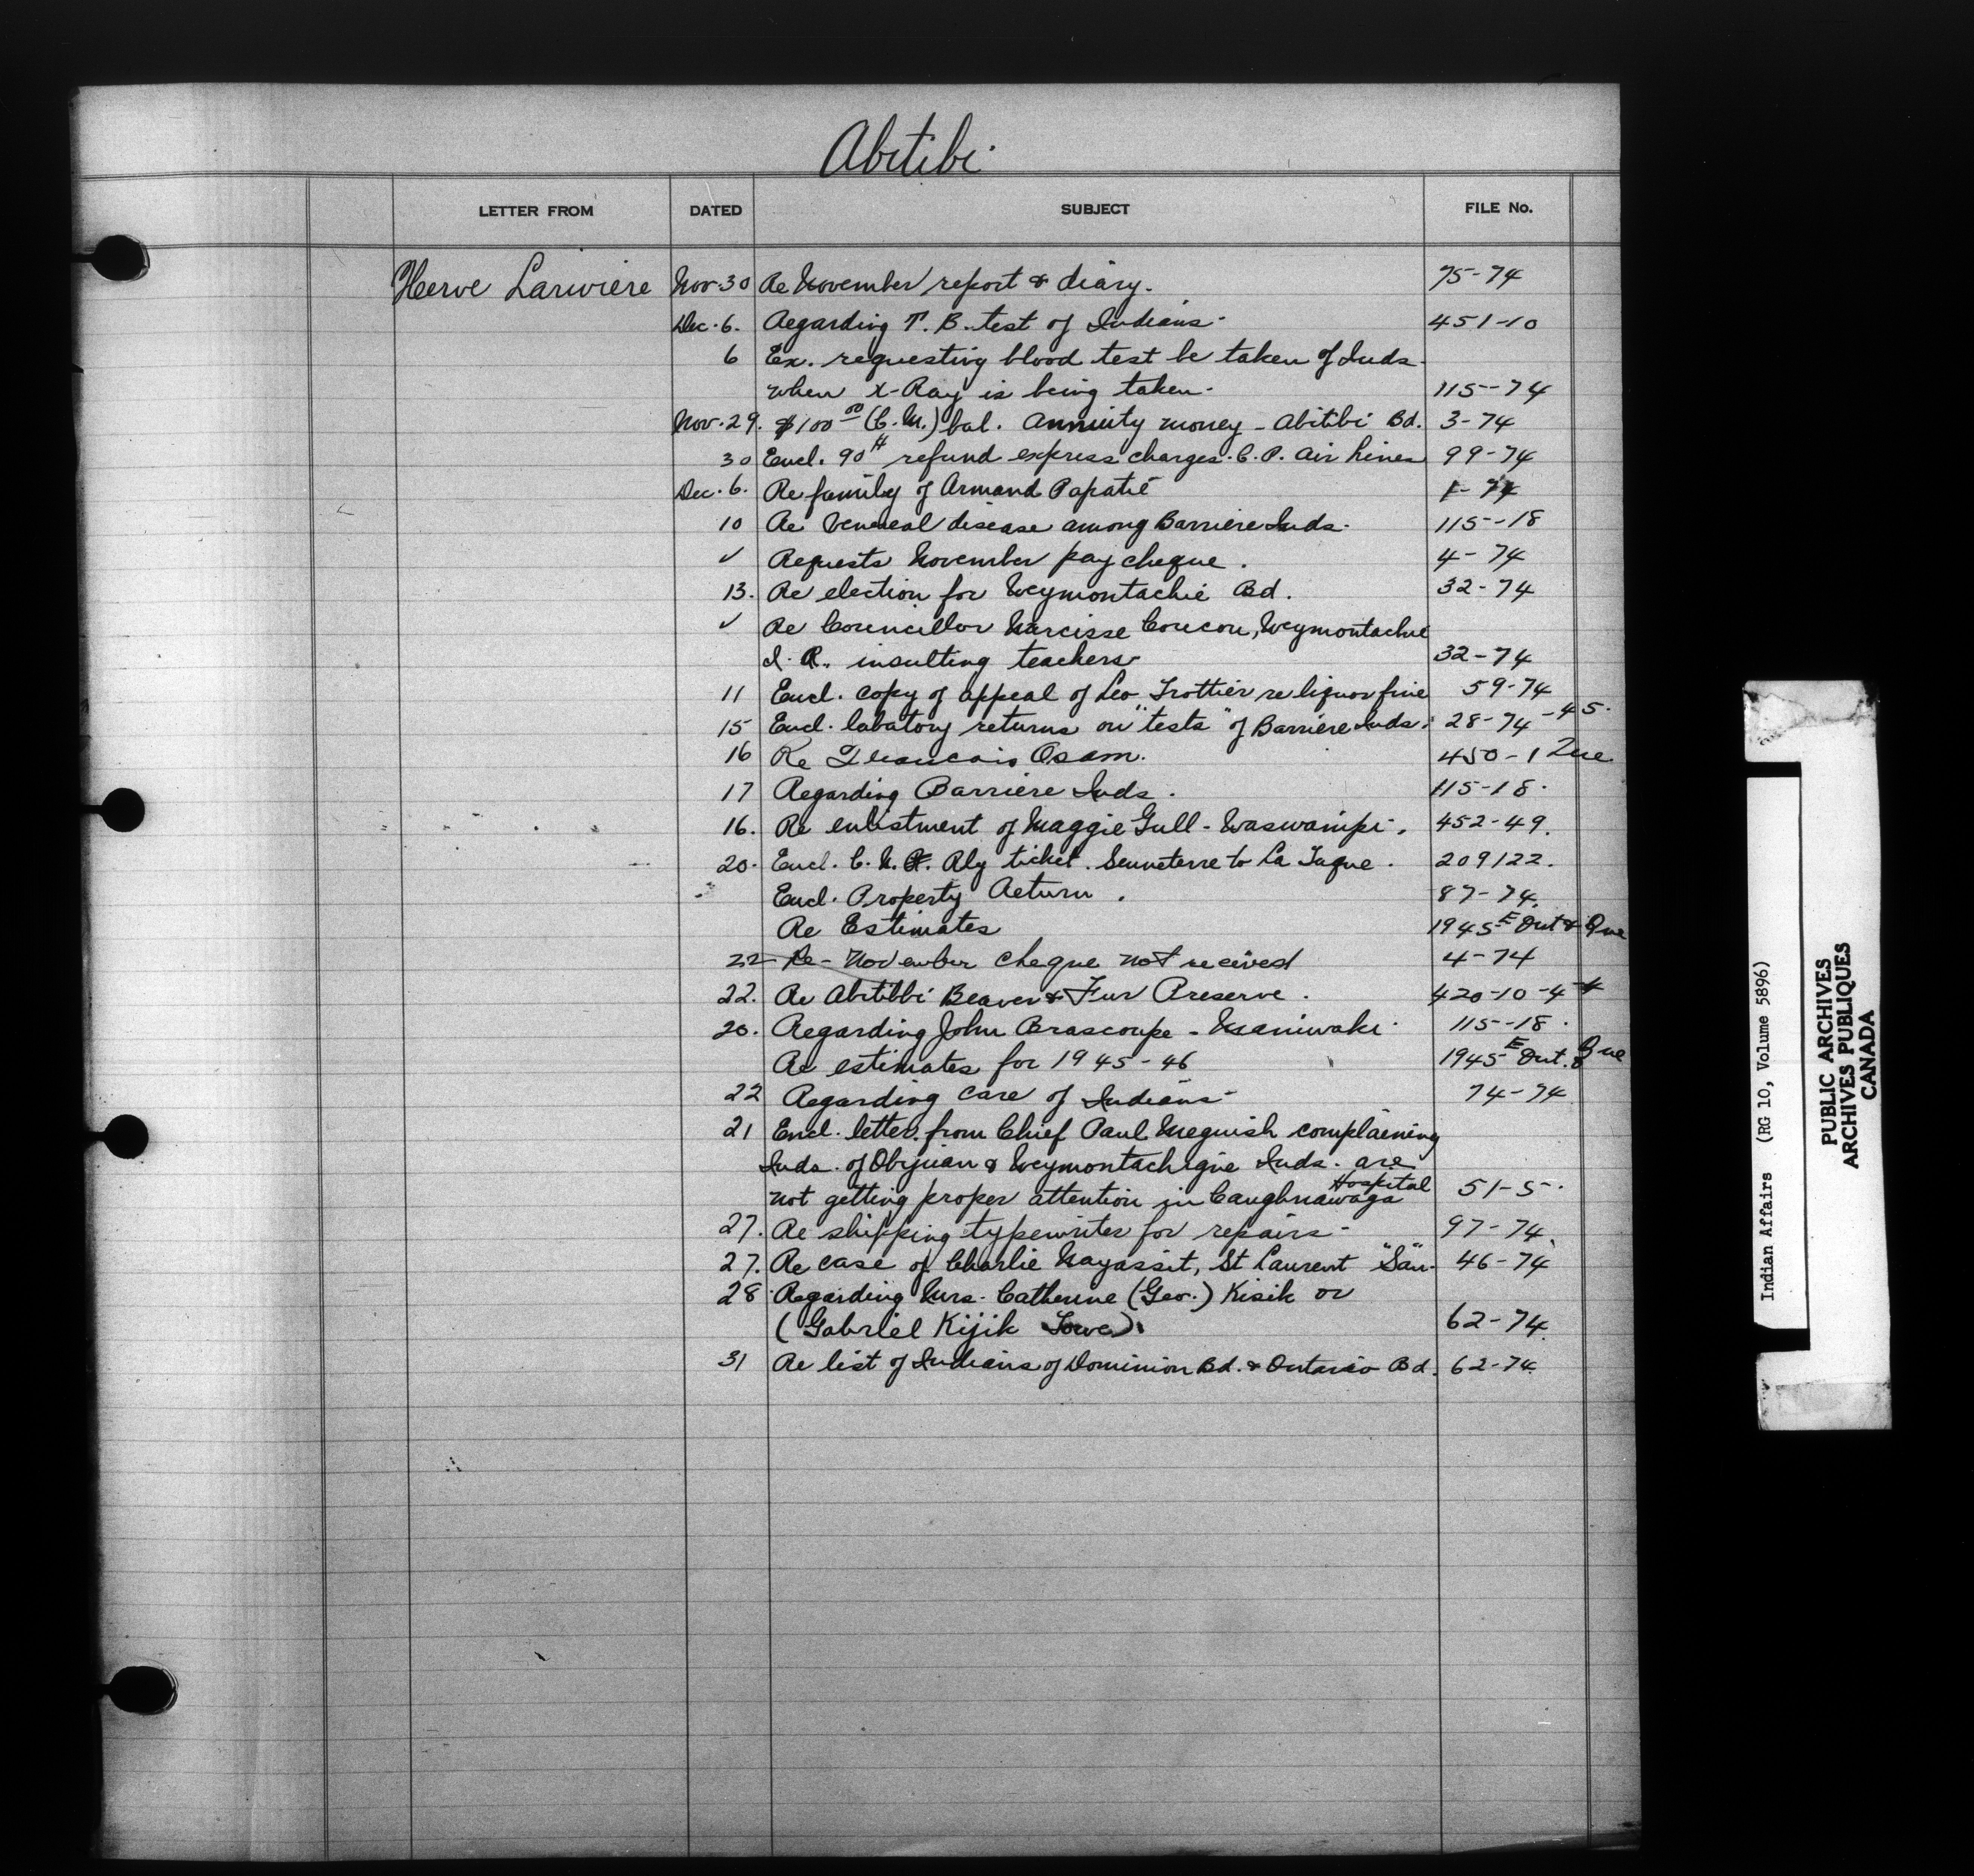 Abitibi
LETTER FROM DATED SUBJECT FILE No.
Herve Lariviere Nov. 30 Re November report & diary. 75-74
Dec. 6. Regarding T. B. test of Indians. 451-10
6 Ex. requesting blood test be taken of Inds.
when X-Ray is being taken. 115-74
Nov. 29. $100.00 (C. M.) bal. Annuity money - Abitibi Bd. 3-74
30 Encl. 90¢ refund express charges. C. P. Air Lines 99-74
Dec. 6. Re family of Armand Papatie 1-74
10 Re Venereal disease among Barriere Inds. 115-18
✓ Requests November pay cheque. 4-74
13. Re election for Weymontachie Bd. 32-74
✓ Re Councillor Narcisse Coucou, Weymontachie
I. R. insulting teachers 32-74
11 Encl. copy of appeal of Leo Trottier re liquor fine 59-74
15 Encl. labatory returns on "tests" of Barriere Inds. 28-74-45.
16 Re Francois Osam. 450-1 Que
17 Regarding Barriere Inds. 115-18.
16. Re enlistment of Maggie Gull - Waswanipi. 452-49.
20. Encl. C. N. R. Rly ticket. Senneterre to La Tuque. 209122.
Encl. Property Return. 87-74.
Re Estimates 1945 E Ont & Que
22 Re - November cheque not recived 4-74
22. Re Abitibbi Beaver & Fur Preserve. 420-10-4-4
20. Regarding John Brascoupe - Maniwaki. 115-18.
Re estimates for 1945-46 1945 E Ont. & Que
22 Regarding care of Indians 74-74
21 Encl. letter from Chief Paul Meguish complaining
Inds. of Obijuan & Weymontachigue Inds. are
not getting proper attention in Caughnawaga Hospital 51-5.
27. Re shipping typewriter for repairs - 97-74.
27. Re case of Charlie Nayassit, St Laurent "San. 46-74
28 Regarding Mrs. Catherine (Geo.) Kisik or
(Gabriel Kijik Lowe). 62-74.
31 Re list of Indians of Dominion Bd. & Ontario Bd. 62-74.
Indian Affairs (RG 10, Volume 5896)
PUBLIC ARCHIVES
ARCHIVES PUBLIQUES
CANADA